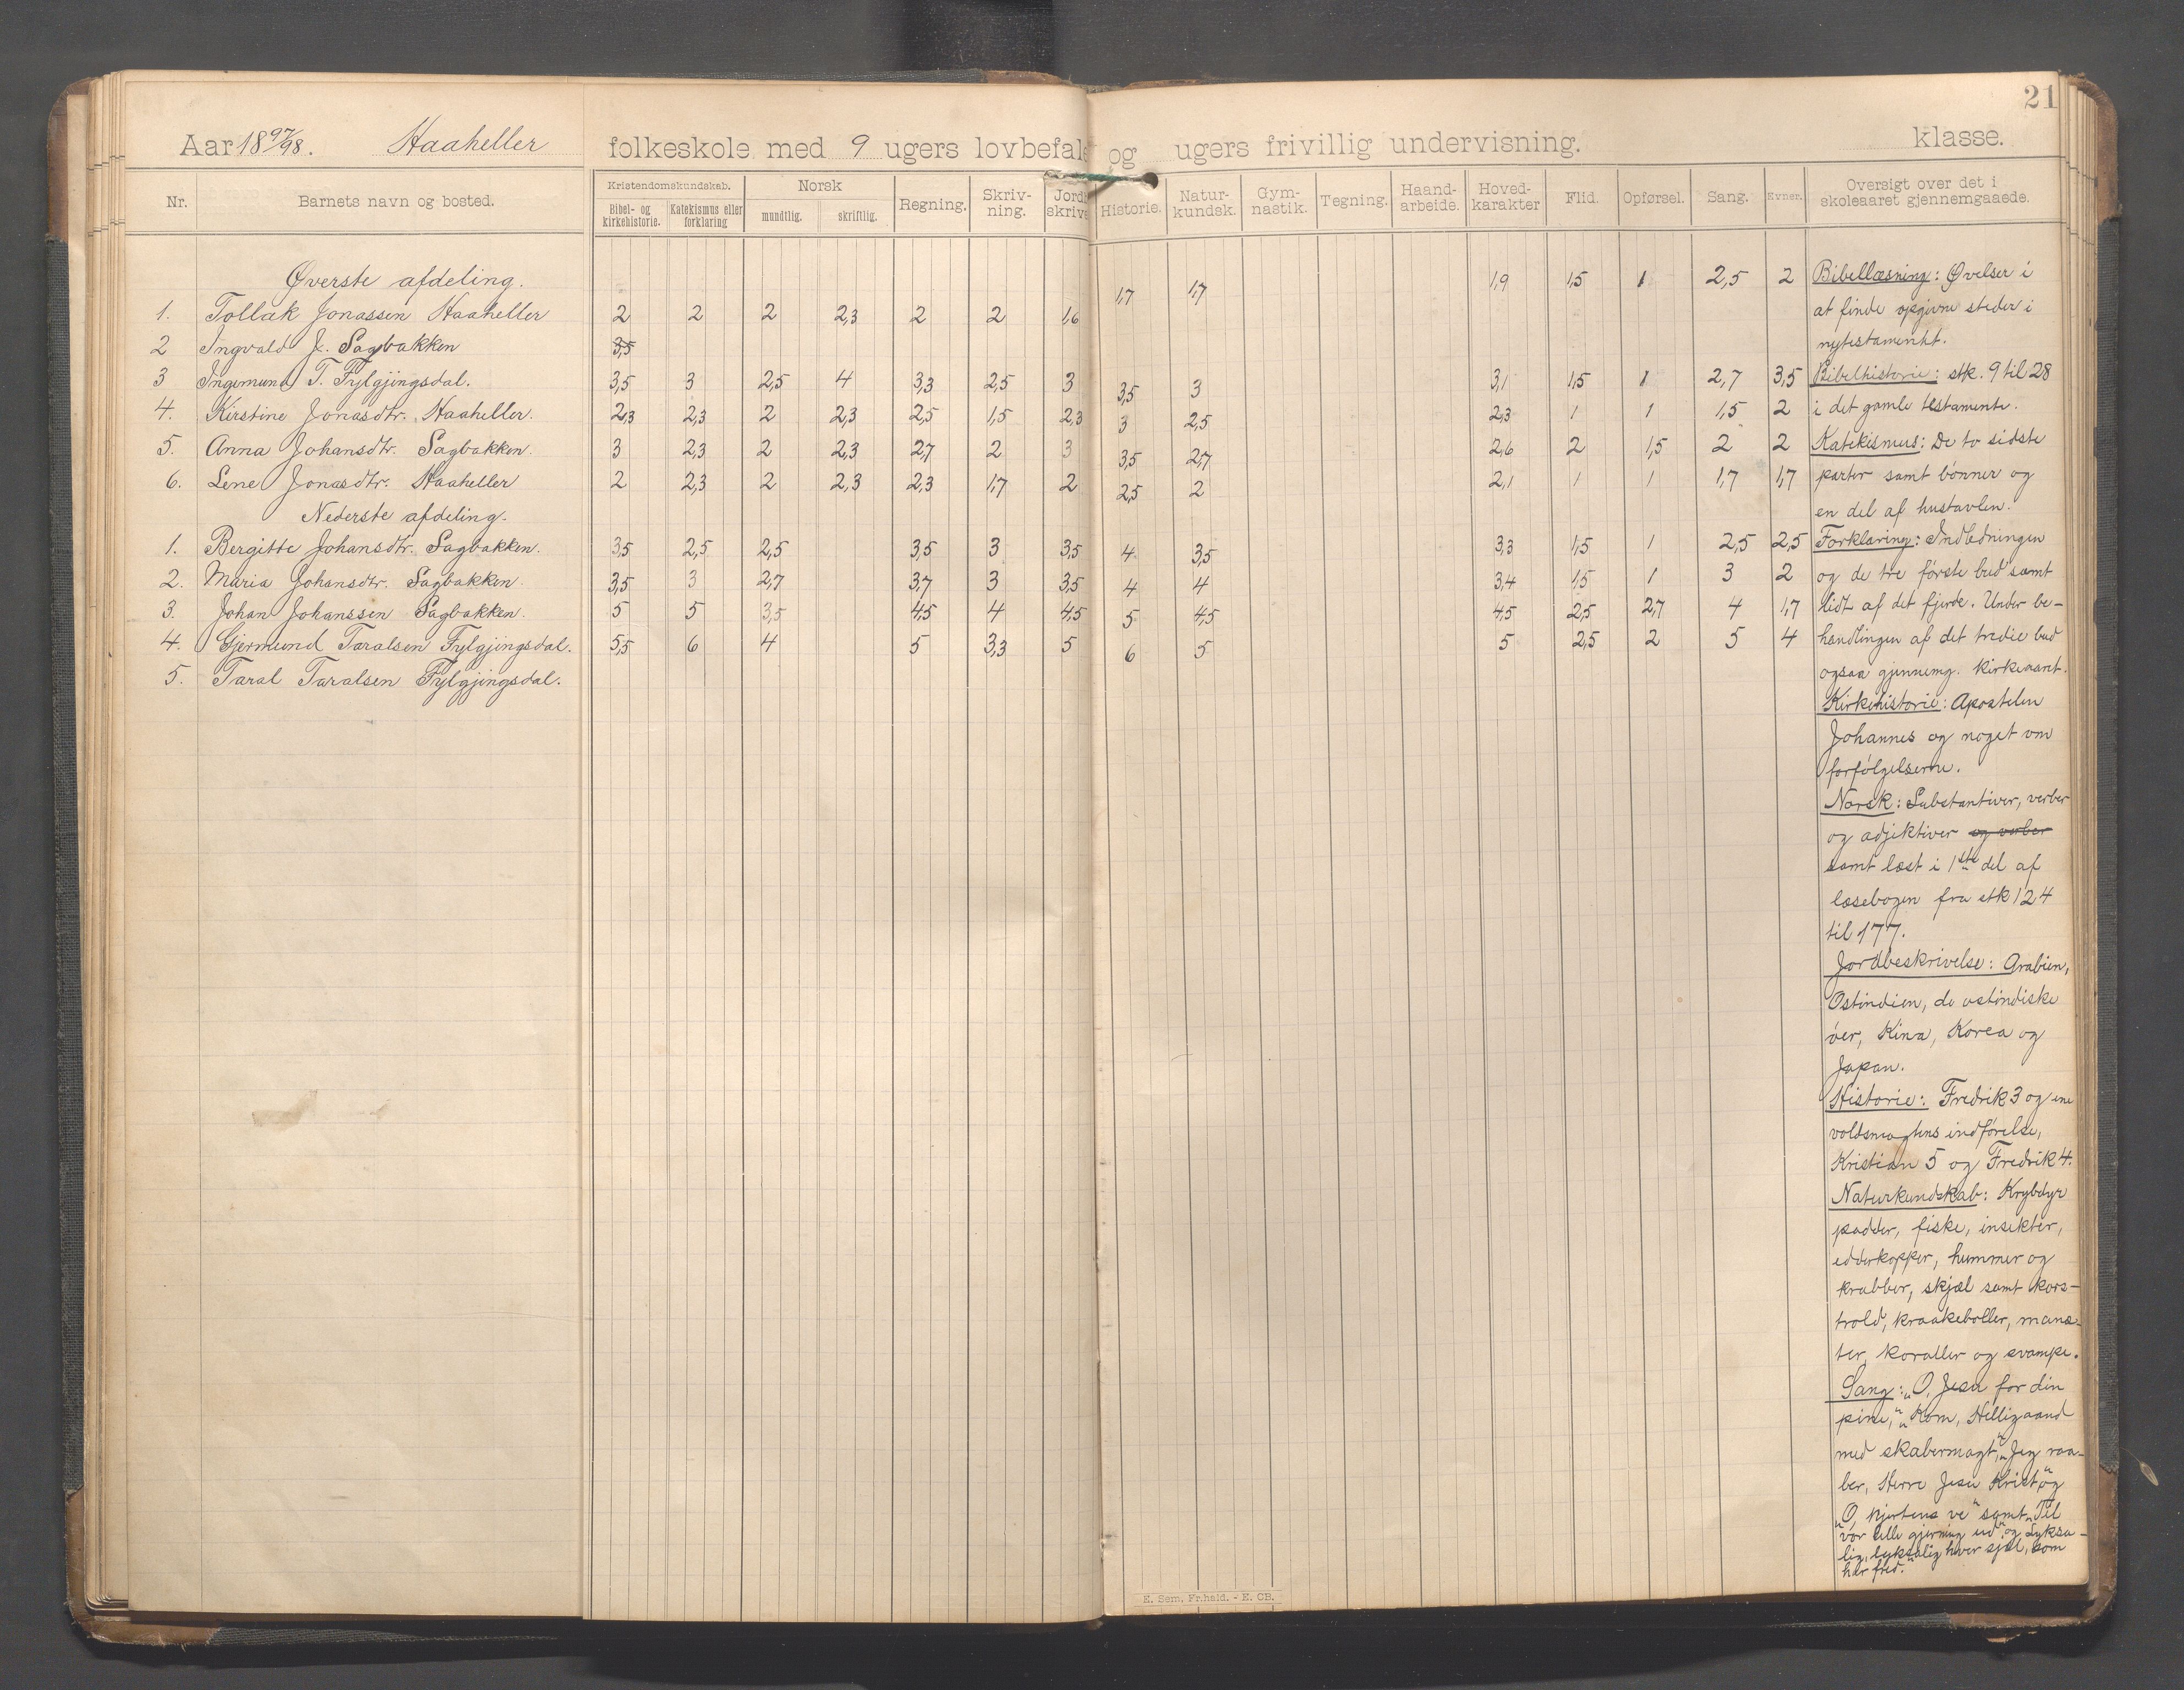 21
Aar 1897/98. Haaheller folkeskole med 9 ugers lovbefale og ugers frivillig undervisning. klasse.
Nr. Barnets navn og bosted. Kristendomskundskab. Bibel- og kirkehistorie. Katekismus eller forklaring Norsk mundtlig. skriftlig. Regning. Skriv-ning. Jord skrive Historie. Natur-kundsk. Gym-nastik. Tegning. Haand-arbeide. Hoved-karakter Flid. Opførsel. Sang. Evner. Oversigt over det i skoleaaret gjennemgaaede.
Øverste afdeling.
1. Tollak Jonassen Haaheller 2 2 2 2,3 2 2 1,6 1,7 1,7 1,9 1,5 1 2,5 2
2 Ingvald J. Sagbakken 3,5
3 Ingemund T. Fylgjingsdal. 3,5 3 2,5 4 3,3 2,5 3 3,5 3 3,1 1,5 1 2,7 3,5
4. Kirstine Jonasdtr. Haaheller. 2,3 2,3 2 2,3 2,5 1,5 2,3 3 2,5 2,3 1 1 1,5 2
5. Anna Johansdtr. Sagbakken. 3 2,3 2 2,3 2,7 2 3 3,5 2,7 2,6 2 1,5 2 2
6. Lene Jonasdtr. Haaheller 2 2,3 2 2,3 2,3 1,7 2 2,5 2 2,1 1 1 1,7 1,7
Nederste afdeling.
1. Bergitte Johansdtr. Sagbakken. 3,5 2,5 2,5 3,5 3 3,5 4 3,5 3,3 1,5 1 2,5 2,5
2. Maria Johansdtr. Sagbakken. 3,5 3 2,7 3,7 3 3,5 4 4 3,4 1,5 1 3 2
3. Johan Johanssen Sagbakken. 5 5 3,5 4,5 4 4,5 5 4,5 4,5 2,5 2,7 4 1,7
4. Gjermund Taralsen Fylgjingsdal. 5,5 6 4 5 3,3 5 6 5 5 2,5 2 5 4
5. Taral Taralsen Fylgjingsdal.
Bibellæsning: Øvelser i
at finde opgivne steder i
nytestamentt.
Bibelhistorie: stk. 9 til 28
i det gamle testamente.
Katekismus: De to sidste
parter samt bønner og
en del af hustavlen.
Forklaring: Indledningen
og de tre første bud samt
lidt af det fjerde. Under be-
handlingen af det tredie bud
ogsaa gjennemg. kirkeaaret.
Kirkehistorie: Apostelen
Johannes og noget om
forfølgelserne.
Norsk: Substantiver, verber
og adjektiver og verber
samt læst i 1ste del af
læsebogen fra stk 124
til 177.
Jordbeskrivelse: Arabien,
Ostindien, de ostindiske
øer, Kina, Korea og
Japan.
Historie: Fredrik 3 og ene
voldsmagtens indførelse,
Kristian 5 og Fredrik 4.
Naturkundskab: Krybdyr
padder, fiske, insekter,
edderkopper, hummer og
krabber, skjæl samt kors-
trold, kraakeboller, manæ-
ter, koraller og svampe.
Sang: „O, Jesu for din
pine," „Kom, Helligaand
med skabermagt," „Jeg raa-
ber, Herre Jesu Krist" og
„O, hjertens ve" samt „Til
vor lille gjerning ud" og „Lyksa-
lig, lyksalig hver sjæl, som
har fred."
E. Sem, Fr.hald. - E. CB.